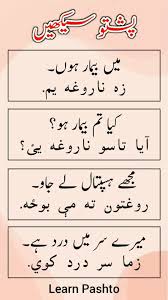 پشتو سیکھیں
میں بیمار ہوں۔
زه ناروغه یم.
کیا تم بیمار ہو؟
آیا تاسو ناروغه یئ؟
مجھے ہسپتال لے جاو۔
روغتون ته مې بوځه.
میرے سر میں درد ہے۔
زما سر درد کوي.
Learn Pashto